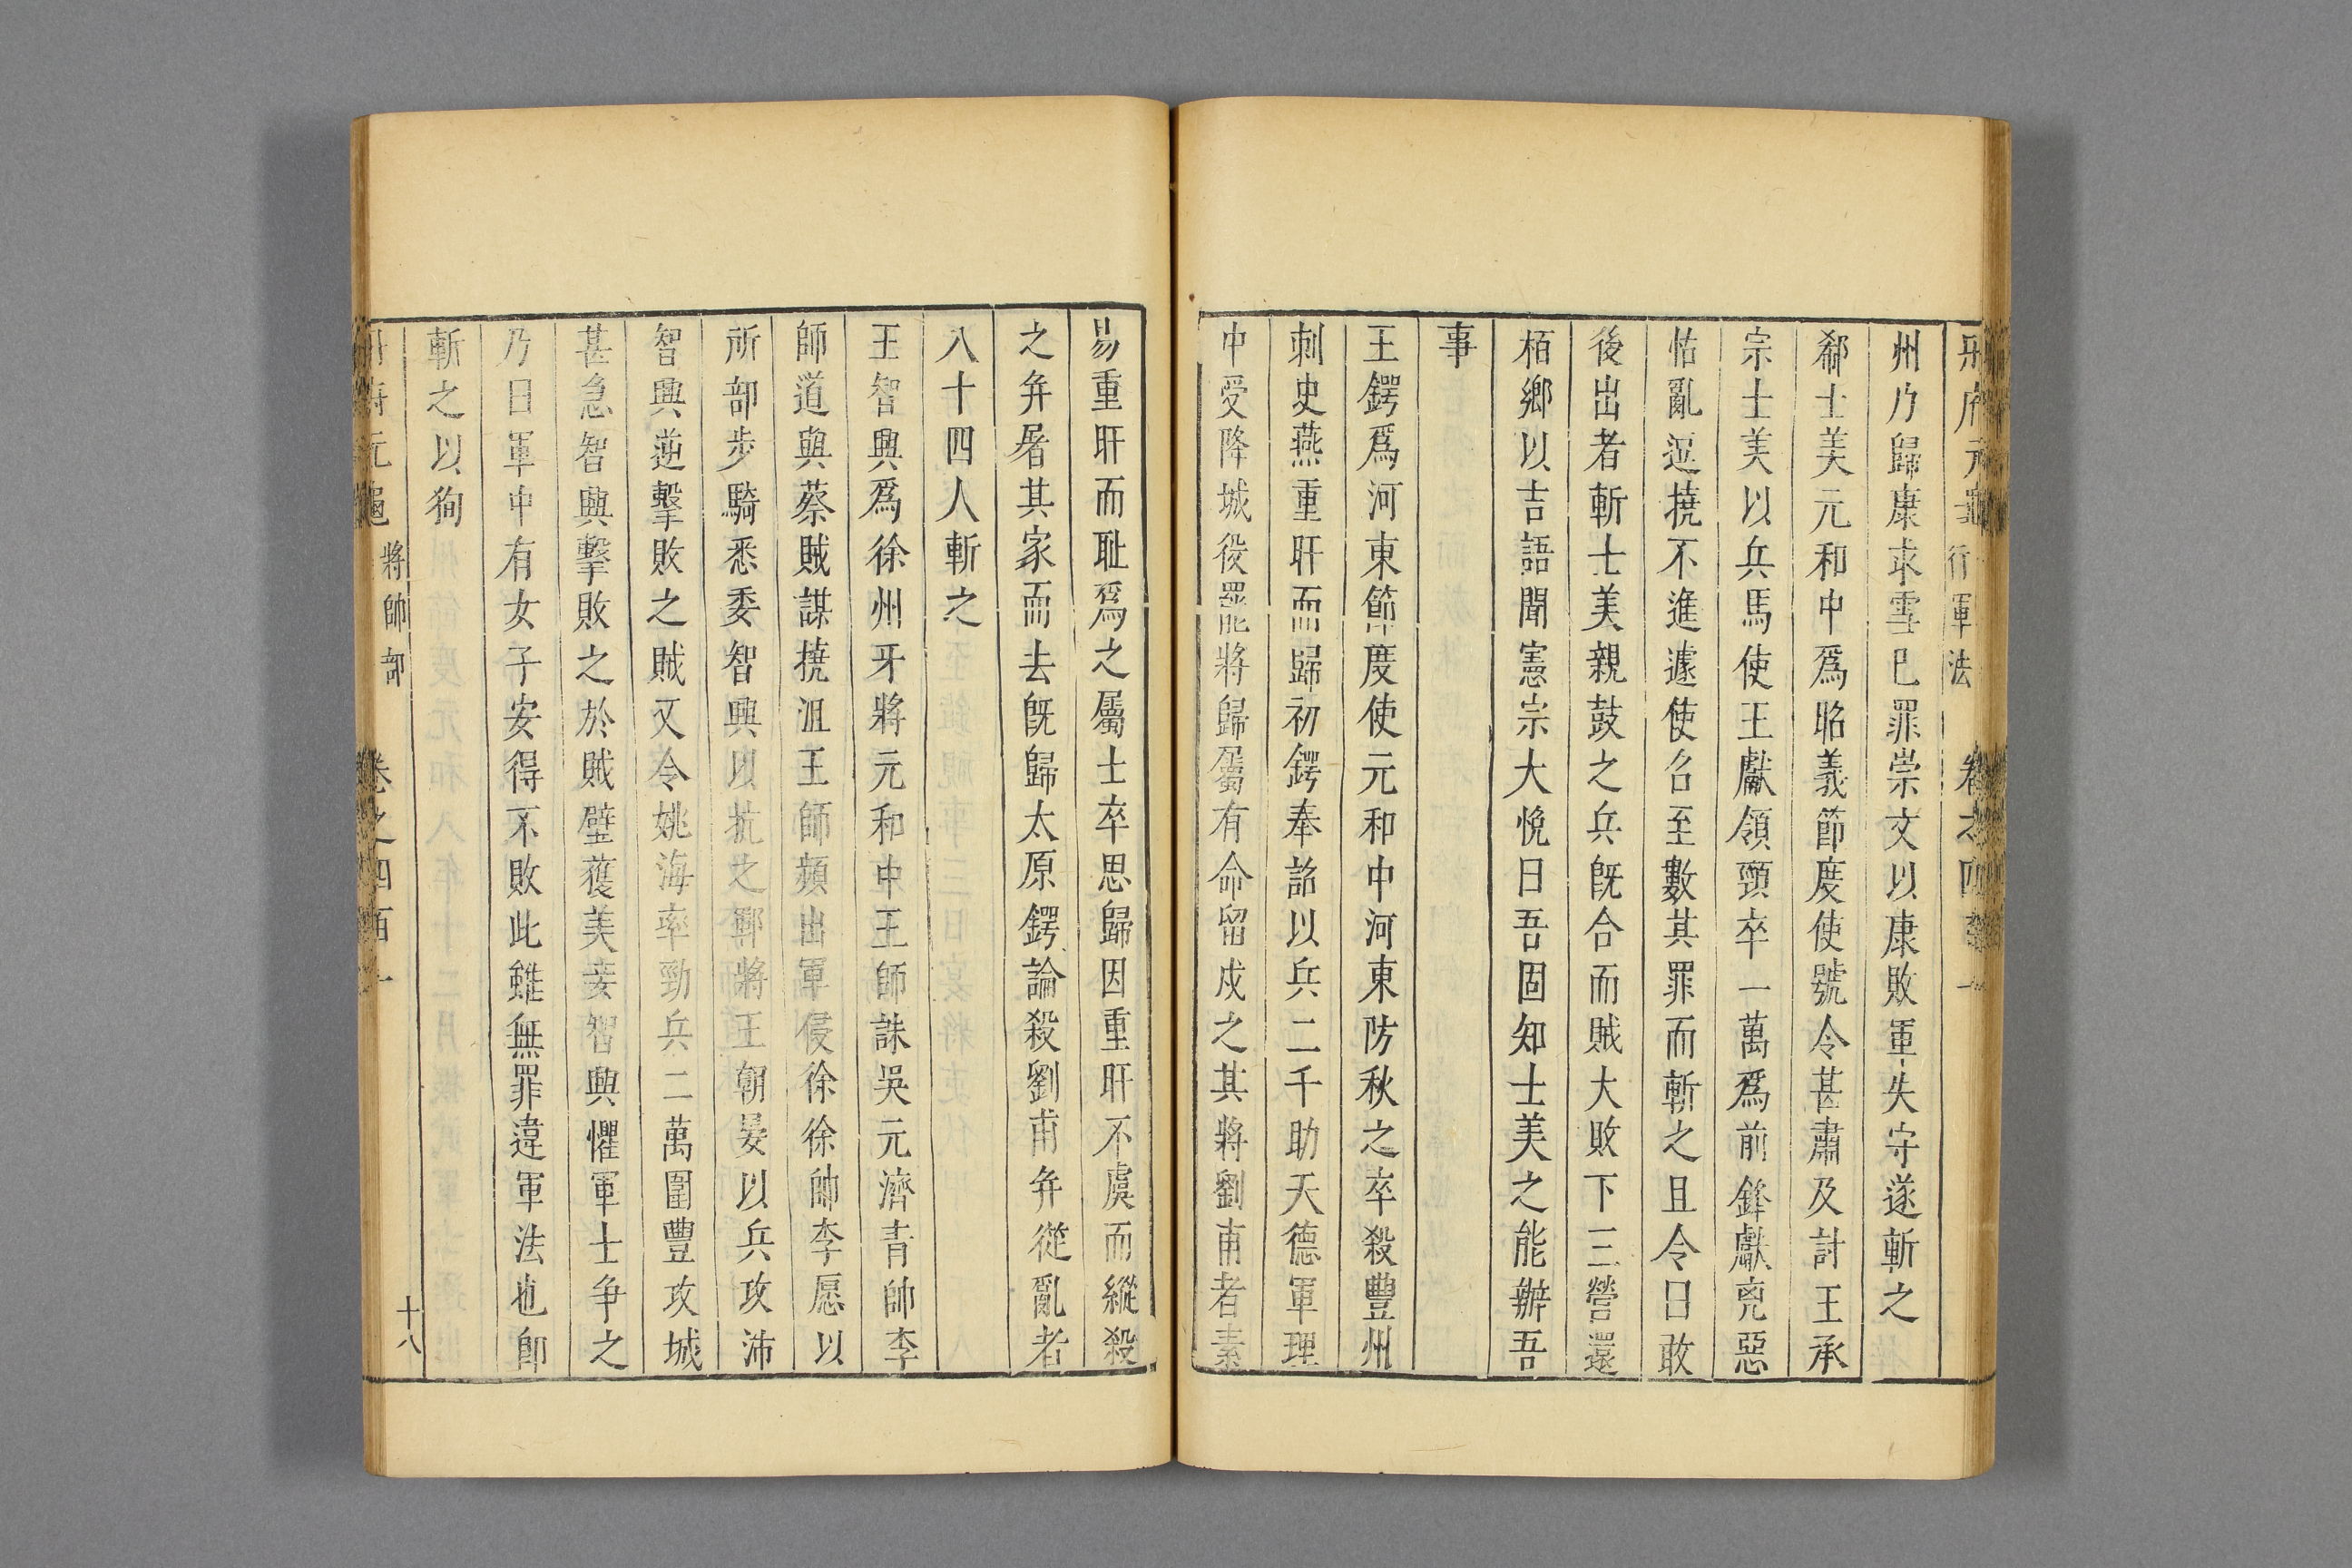 冊府元龜 行軍法 卷之四百一
州乃歸康求雪已罪崇文以康敗軍失守遂斬之
郗士美元和中爲昭義節度使號令甚肅及討王承
宗士美以兵馬使王獻領勁卒一萬爲前鋒獻兇惡
怙亂逗撓不進遽使召至數其罪而斬之且令曰敢
後出者斬士美親鼓之兵旣合而賊大敗下三營還
栢鄉以吉語聞憲宗大悅曰吾固知士美之能辦吾
事
王鍔爲河東節度使元和中河東防秋之卒殺豐州
刺史燕重旰而歸初鍔奉詔以兵二千助天德軍理
中受降城役罷將歸屬有命留戍之其將劉甫者素
易重旰而耻爲之屬士卒思歸因重旰不虞而縱殺
之并屠其家而去旣歸太原鍔論殺劉甫并從亂者
八十四人斬之
王智興爲徐州牙將元和中王師誅吳元濟青帥李
師道與蔡賊謀撓沮王師頻出軍侵徐徐帥李愿以
所部步騎悉委智興以抗之鄆將王朝晏以兵攻沛
智興逆擊敗之賊又令姚海率勁兵二萬圍豐攻城
甚急智興擊敗之於賊壁獲美妾智興懼軍士争之
乃曰軍中有女子安得不敗此雖無罪違軍法也卽
斬之以狥
冊府元龜 將帥部 卷之四百一 十八